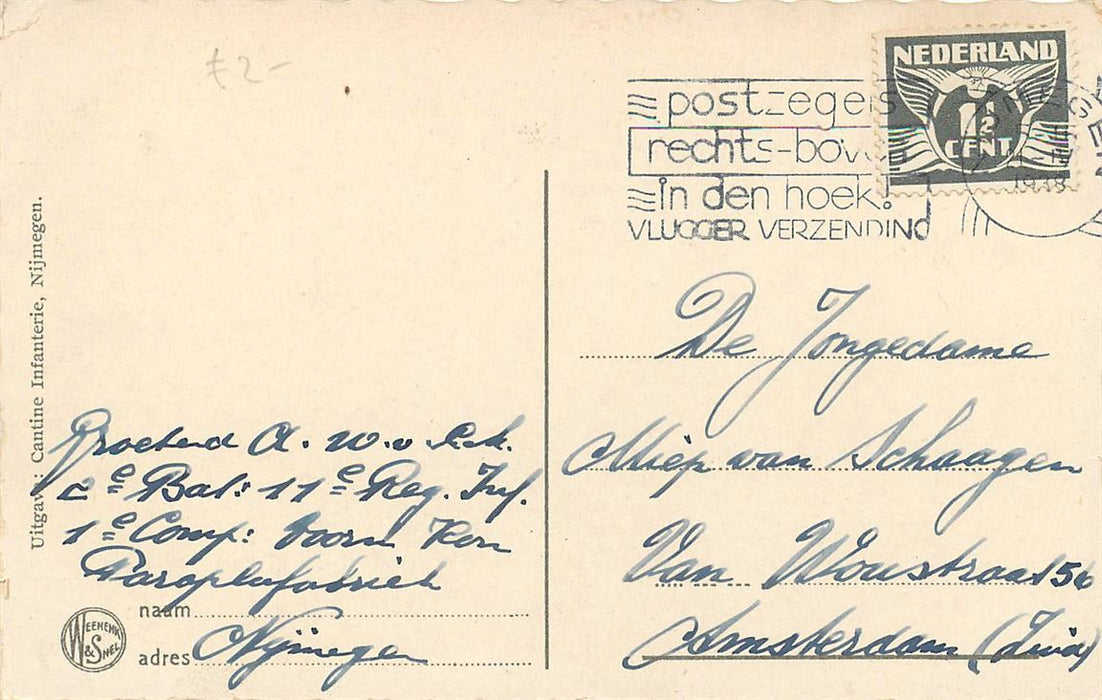 £ 2-
NEDERLAND
7½
CENT
1938
postzegels
rechts-boven
in den hoek!
VLUGGER VERZENDING
Uitgave: Cantine Infanterie, Nijmegen.
De Jongedame
Miep van Schaagen
Van Woustraat 156
Amsterdam (Zuid)
Groetend A. W. v.
2e Bat: 11e Reg. Inf.
1e Comp: voorm.
Paraplufabriek
naam
adres Nijmegen
WEENENK & SNEL